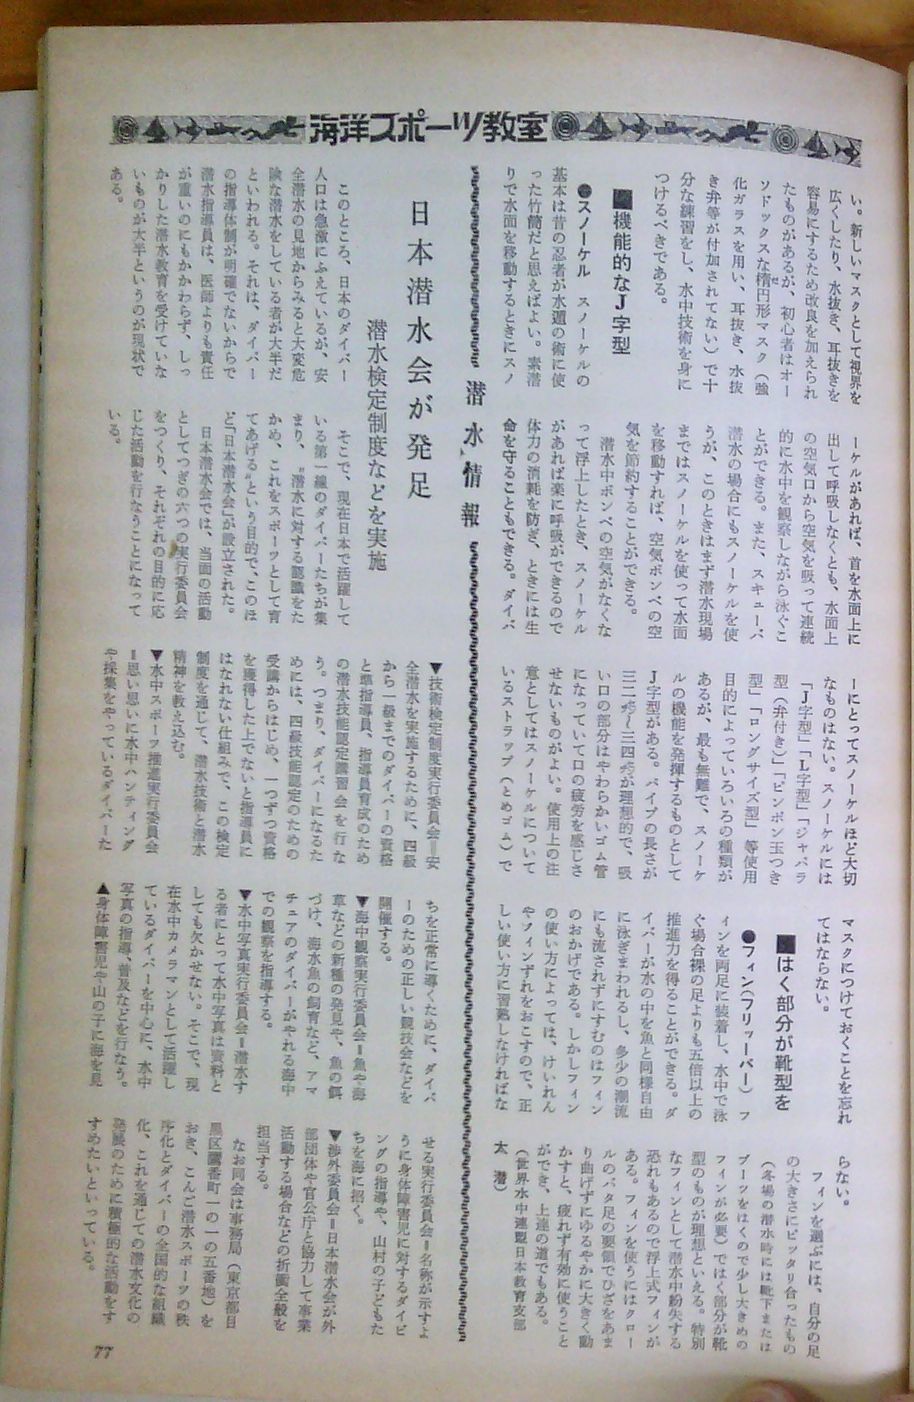 海洋スポーツ教室
い。新しいマスクとして視界を
広くしたり、水抜き、耳抜きを
容易にするため改良を加えられ
たものがあるが、初心者はオー
ソドックスな楕円形マスク（強
化ガラスを用い、耳抜き、水抜
き弁等が付加されてない）で十
分な練習をし、水中技術を身に
つけるべきである。
■機能的なJ字型
●スノーケル　スノーケルの
基本は昔の忍者が水遁の術に使
った竹筒だと思えばよい。素潜
りで水面を移動するときにスノ
ーケルがあれば、首を水面上に
出して呼吸しなくとも、水面上
の空気口から空気を吸って連続
的に水中を観察しながら泳ぐこ
とができる。また、スキューバ
潜水の場合にもスノーケルを使
うが、このときはまず潜水現場
まではスノーケルを使って水面
を移動すれば、空気ボンベの空
気を節約することができる。
潜水中ボンベの空気がなくな
って浮上したとき、スノーケル
があれば楽に呼吸ができるので
体力の消耗を防ぎ、ときには生
命を守ることもできる。ダイバ
ーにとってスノーケルほど大切
なものはない。スノーケルには
「J字型」「L字型」「ジャバラ
型（弁付き）」「ピンポン玉つき
型」「ロングサイズ型」等使用
目的によっていろいろの種類が
あるが、最も無難で、スノーケ
ルの機能を発揮するものとして
J字型がある。パイプの長さが
三二㌢〜三四㌢が理想的で、吸
い口の部分はやわらかいゴム管
になっていて口の疲労を感じさ
せないものがよい。使用上の注
意としてはスノーケルについて
いるストラップ（とめゴム）で
マスクにつけておくことを忘れ
てはならない。
■はく部分が靴型を
●フィン（フリッーパー）　フ
ィンを両足に装着し、水中で泳
ぐ場合裸の足よりも五倍以上の
推進力を得ることができる。ダ
イバーが水の中を魚と同様自由
に泳ぎまわれるし、多少の潮流
にも流されずにすむのはフィン
のおかげである。しかしフィン
の使い方によっては、けいれん
やフィンずれをおこすので、正
しい使い方に習熟しなければな
らない。
フィンを選ぶには、自分の足
の大きさにピッタリ合ったもの
（冬場の潜水時には靴下または
ブーツをはくので少し大きめの
フィンが必要）ではく部分が靴
型のものが理想といえる。特別
なフィンとして潜水中紛失する
恐れもあるので浮上式フィンが
ある。フィンを使うにはクロー
ルのバタ足の要領でひざをあま
り曲げずにゆるやかに大きく動
かすと、疲れず有効に使うこと
ができ、上達の道でもある。
（世界水中連盟日本教育支部
太　潜）
潜水情報
日本潜水会が発足
潜水検定制度などを実施
このところ、日本のダイバー
人口は急激にふえているが、安
全潜水の見地からみると大変危
険な潜水をしている者が大半だ
といわれる。それは、ダイバー
の指導体制が明確でないからで
潜水指導員は、医師よりも責任
が重いのにもかかわらず、しっ
かりした潜水教育を受けていな
いものが大半というのが現状で
ある。
そこで、現在日本で活躍して
いる第一線のダイバーたちが集
まり、〝潜水に対する認識をた
かめ、これをスポーツとして育
てあげる〟という目的で、このほ
ど「日本潜水会」が設立された。
日本潜水会では、当面の活動
としてつぎの六つの実行委員会
をつくり、それぞれの目的に応
じた活動を行なうことになって
いる。
▼技術検定制度実行委員会＝安
全潜水を実施するために、四級
から一級までのダイバーの資格
と準指導員、指導員育成のため
の潜水技能認定講習会を行な
う。つまり、ダイバーになるた
めには、四級技能認定のための
受講からはじめ、一つずつ資格
を獲得した上でないと指導員に
はなれない仕組みで、この検定
制度を通じて、潜水技術と潜水
精神を教え込む。
▼水中スポーツ推進実行委員会
＝思い思いに水中ハンティング
や採集をやっているダイバーた
ちを正常に導くために、ダイバ
ーのための正しい競技会などを
開催する。
▼海中観察実行委員会＝魚や海
草などの新種の発見や、魚の餌
づけ、海水魚の飼育など、アマ
チュアのダイバーがやれる海中
での観察を指導する。
▼水中写真実行委員会＝潜水す
る者にとって水中写真は資料と
しても欠かせない。そこで、現
在水中カメラマンとして活躍し
ているダイバーを中心に、水中
写真の指導、普及などを行なう。
▲身体障害児や山の子に海を見
せる実行委員会＝名称が示すよ
うに身体障害児に対するダイビ
ングの指導や、山村の子どもた
ちを海に招く。
▼渉外委員会＝日本潜水会が外
部団体や官公庁と協力して事業
活動する場合などの折衝全般を
担当する。
なお同会は事務局（東京都目
黒区鷹番町一の一の五番地）を
おき、こんご潜水スポーツの秩
序化とダイバーの全国的な組織
化、これを通じての潜水文化の
発展のために積極的な活動をす
すめたいといっている。
77